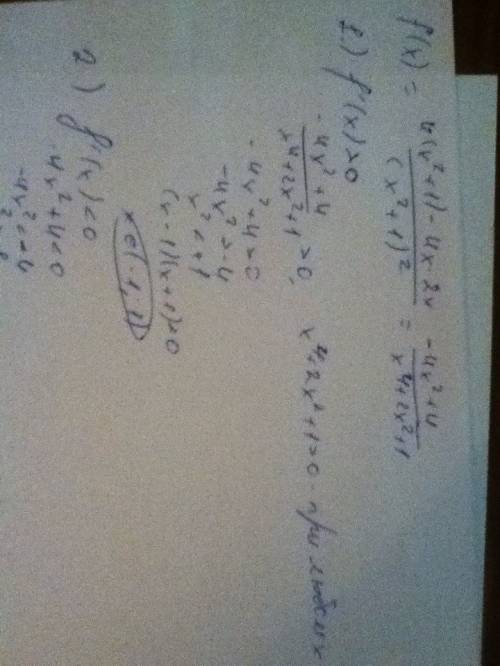 f'(x) = (4(x²+1) - 4x·2x)/(x²+1)² = (-4x²+4)/(x⁴+2x²+1)
1) f'(x)>0
(-4x²+4)/(x⁴+2x²+1) >0, x⁴+2x²+1>0 - при любых x
-4x²+4>0
-4x²>-4
x²<+1
(x-1)(x+1)<0
x∈(-1, 1)
2) f'(x)<0
-4x²+4<0
-4x²<-4